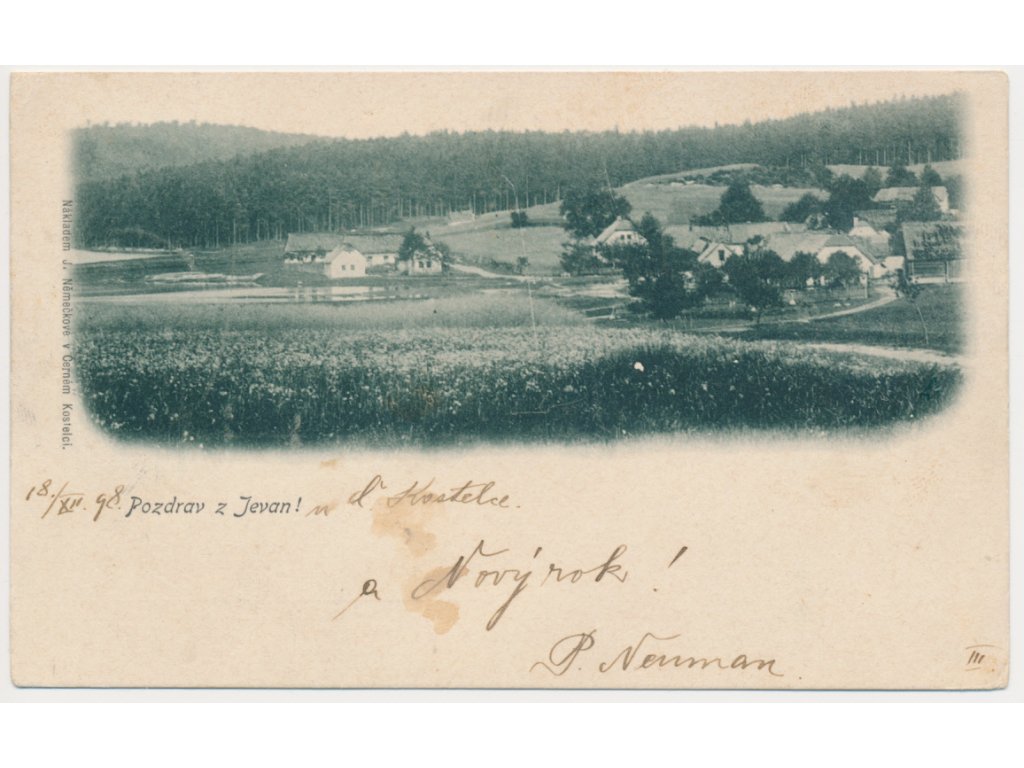 Nákladem J. Němečkové v Černém Kostelci.
18./XII. 98. Pozdrav z Jevan! u Č. Kostelce.
a Nový rok!
P. Neuman
III